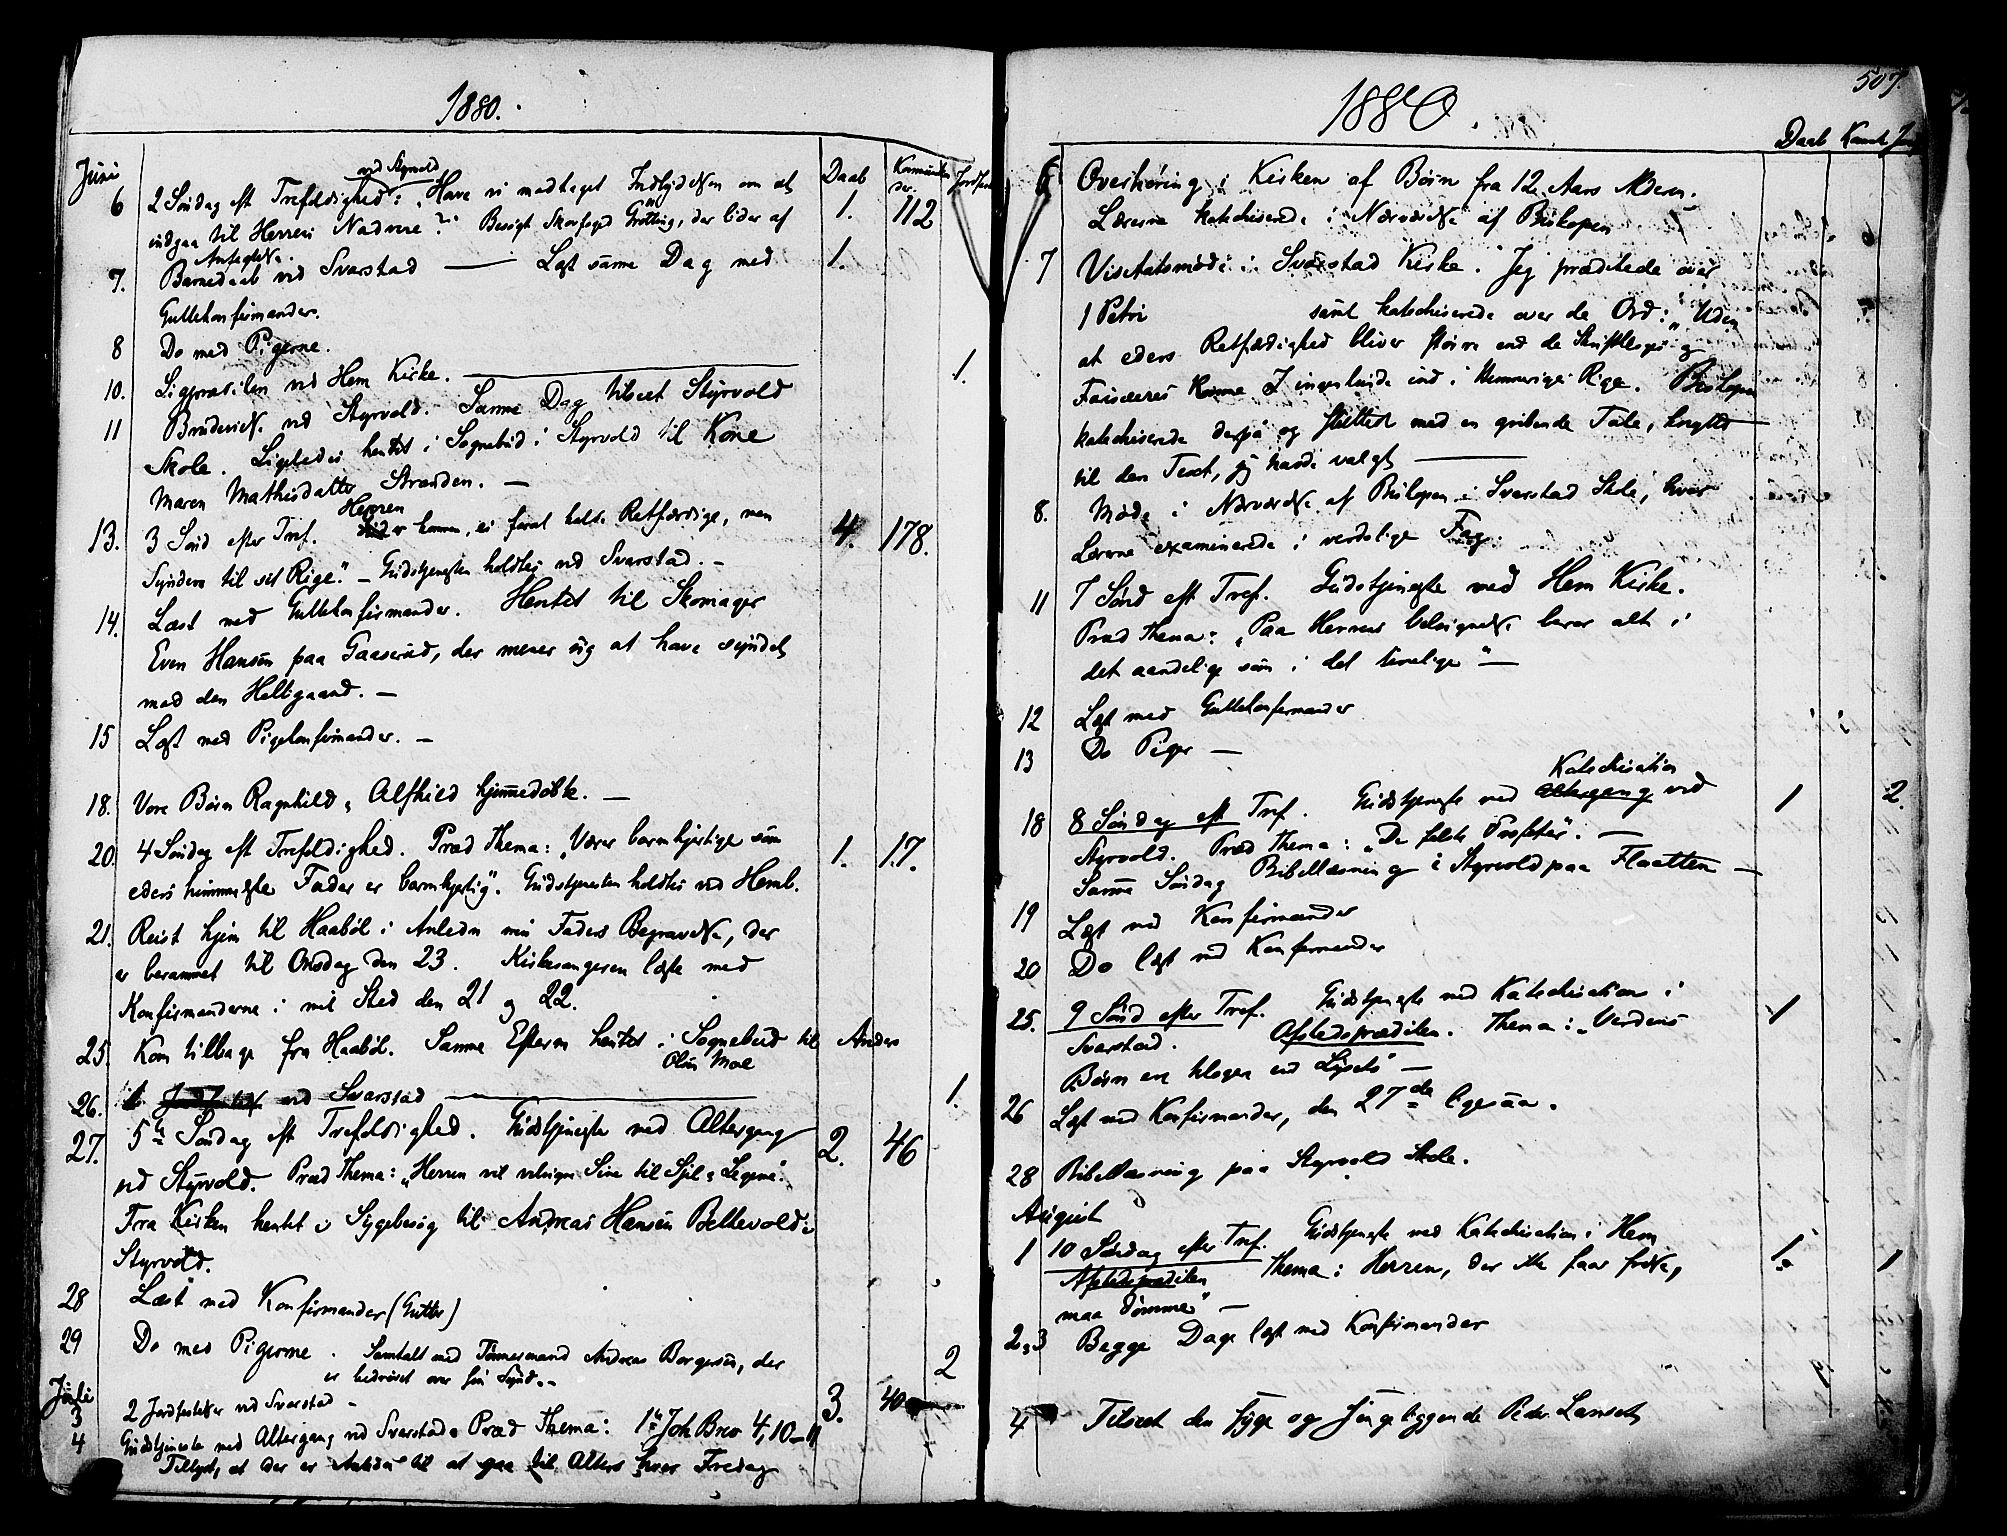 1880.
Juni Daab Kommunikan Jordfæst
ved Styrvold
6 2 Søndag eft Trefoldighed: "Have vi modtaget Indbydelsen om at 1. 112
indgaa til Herrens Nadvere?" Besøgt Skovfoged Grøtting, der lider af
Anfægtelse.
7. Barnedaab ved Svarstad — Læst samme Dag med 1.
Guttekonfirmander.
8 Do med Pigerne.
10. Ligprædiken ved Hem Kirke. — 1.
11 Brudevielse ved Styrvold. Samme Dag tilseet Styrvold
Skole. Ligeledes hentet i Sognebud i Styrvold til Kone
Maren Mathisdatter Stranden. —
Herren
13. 3 Sønd efter Tref. er kommen, ei forat kalde Retfærdige, men 4. 178.
Syndere til sit Rige." — Gudstjenesten holdtes ved Svarstad. —
14. Læst med Guttekonfirmander. Hentet til Skomager
Even Hansen paa Gaaserud, der mener sig at have syndet
mod den Helligaand. —
15 Læst med Pigekonfirmander. —
18. Vore Børn Ragnhild & Alfhild hjemmedøbte. —
20. 4 Søndag eft Trefoldighed. Præd Thema: "Værer barmhjertige som 1. 17.
eders himmelske Fader er barmhjertig". Gudstjenesten holdtes ved Hem k.
21. Reist hjem til Haabøl i Anledn min Faders Begravelse, der
er berammet til Onsdag den 23. Kirkesangeren læste med
Konfirmanderne i mit Sted den 21 og 22.
25. Kom tilbage fra Haabøl. Samme Efterm hentet i Sognebud til Anders
Olsen Moe
26. ved Svarstad — 1.
27. 5te Søndag eft Trefoldighed. Gudstjeneste med Altergang 2. 46
ved Styrvold. Præd Thema: "Herren vil velsigne Sine til Sjel & Legeme."
Fra Kirken hentet i Sygebesøg til Andreas Hansen Bellevold i
Styrvold.
28 Læst med Konfirmander (Gutter)
29 Do med Pigerne. Samtalt med Tømmermand Andreas Borgersen, der
er bedrøvet over sin Synd. —
Juli 2
3 2 Jordfæstelser ved Svarstad —
4 Gudstjeneste med Altergang ved Svarstad Præd Thema: 1te Joh Brev 4,10-11 3. 40
Tillyst, at der er Anledn til at gaa til Alters hver Fredag
507.
1880.
Daab Komk Jordf
6 Overhøring i Kirken af Børn fra 12 Aars Alderen.
Lærerne katechiserede i Nærværelse af Biskopen
7 Visitatsmøde i Svarstad Kirke. Jeg prædikede over
1 Petri samt katechiserede over de Ord: "Uden
at eders Retfærdighed bliver større end de Skriftkloges og
Farisæeres komme I ingenlunde ind i Himmeriges Rige. Biskopen
katechiserede derpå og sluttet med en gribende Tale, knyttet
til den Text, jeg havde valgt —
8. Møde i Nærværelse af Biskopen i Svarstad Skole, hvor
Lærerne examinerede i verdslige Fag.
11 7 Sønd eft Tref. Gudstjeneste ved Hem Kirke.
Præd Thema: "Paa Herrens Velsignelse beror alt i
det aandelige som i det timelige" —
12 Læst med Guttekonfirmander
13 Do Piger —
Katechisation
18 8 Søndag eft Tref. Gudstjeneste med Altergang ved 1 2.
Styrvold. Præd Thema: "De falske Profeter". —
Samme Søndag Bibellæsning i Styrvold paa Flaatten —
19 Læst med Konfirmander
20 Do læst med Konfirmander
25. 9 Sønd efter Tref. Gudstjeneste med Katechisation i 1
Svarstad. Afskedsprædiken. Thema: "Verdens
Børn ere klogere end Lysets" —
26 Læst med Konfirmander, den 27de ligesaa.
28 Bibellæsning paa Styrvold Skole.
August
1 10 Søndag efter Tref. Gudstjeneste med Katechisation i Hem 1. 1
Afskedsprædiken Thema: Herren, der ikke faar frelse,
maa dømme" —
2 & 3 Begge Dage læst med Konfirmander
4 Tilseet den syge og sengeliggende Peder